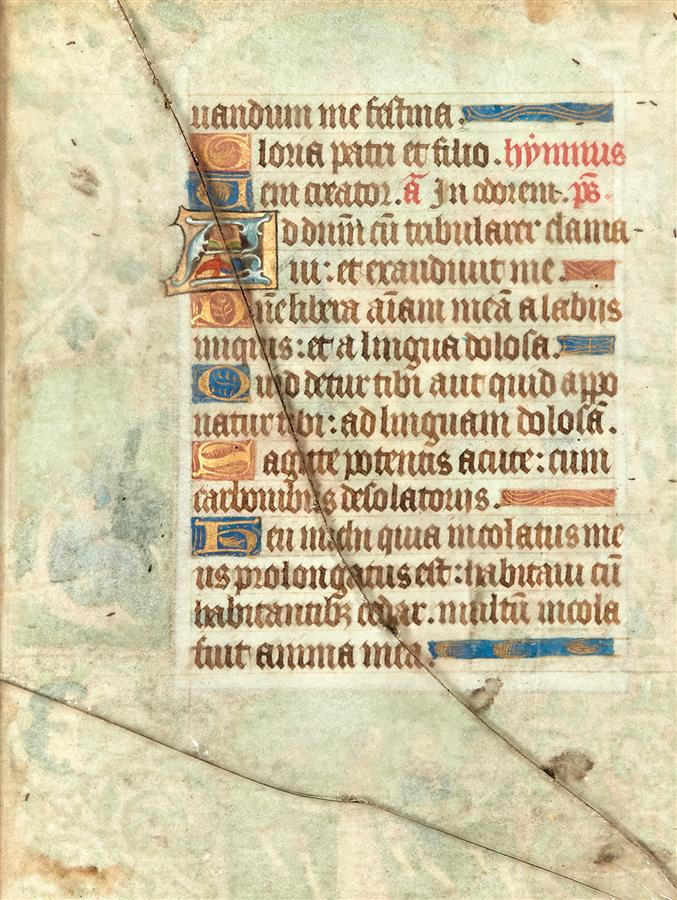 uandum me festina.
Gloria patri et filio. hymnus
Ueni creator. a͞ In odorem. ps͞.
Ad dn͞m cu͞ tribularer clama-
ui: et exaudiuit me.
Dn͞e libera ai͞am mea͞ a labijs
iniquis: et a lingua dolosa.
Quid detur tibi aut quid appo
natur tibi: ad linguam dolosa͞.
Sagitte potentis acute: cum
carbonibus desolatorijs.
Heu michi quia incolatus me
us prolongatus est: habitaui cu͞
habitantibꝫ cedar. multu͞ incola
fuit anima mea.